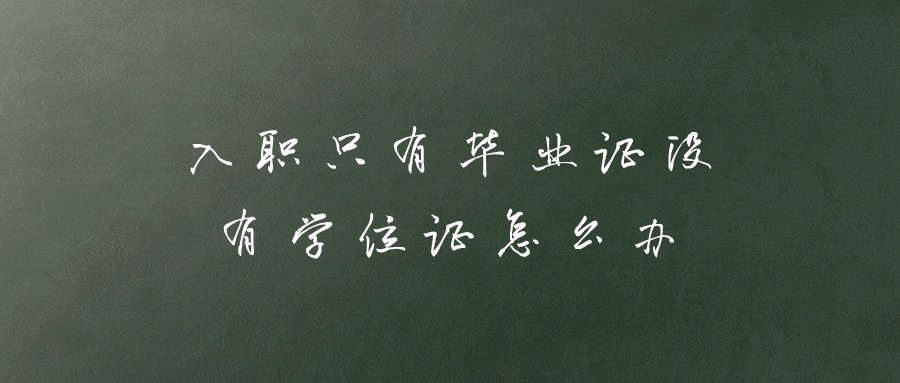 入职只有毕业证没
有学位证怎么办